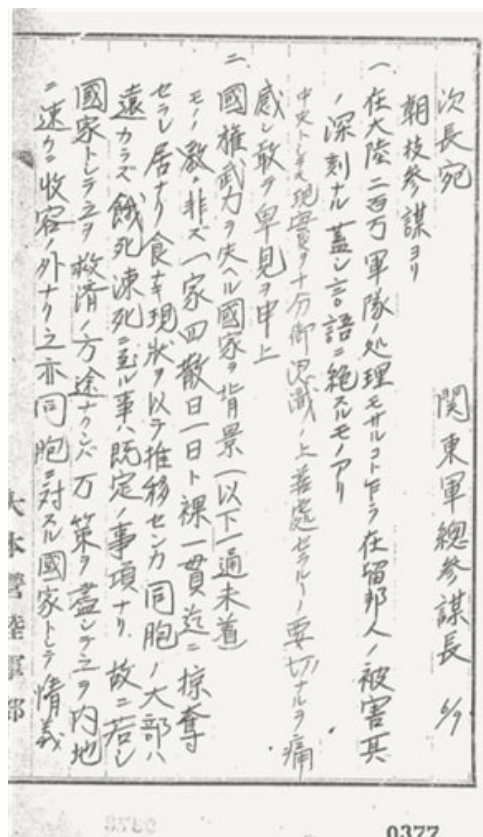 次長宛 関東軍總参謀長
朝枝参謀ヨリ
一、在大陸二百万軍隊ノ処理モサルコト乍ラ在留邦人ノ被害其
ノ深刻ナル蓋シ言語ニ絶スルモノアリ
中央トシテモ現実ヲ十分御認識ノ上善處セラルヽノ要切ナルヲ痛
感シ敢テ卑見ヲ申上
二、國権武力ヲ失ヘル國家ヲ背景(以下一通未着)
モノ数ニ非ズ一家四散日一日ト裸一貫迄ニ掠奪
セラレ居ナリ食ナキ現状ヲ以テ推移センカ同胞ノ大部ハ
遠カラズ餓死凍死ニ至ル事ハ既定ノ事項ナリ 故ニ若シ
國家トシテ之ヲ救済ノ方途ナクンバ万策ヲ盡シテ之ヲ内地
ニ速ニ收容ノ外ナク之亦同胞ニ対スル國家トシテ情義
大本營陸軍部
0377